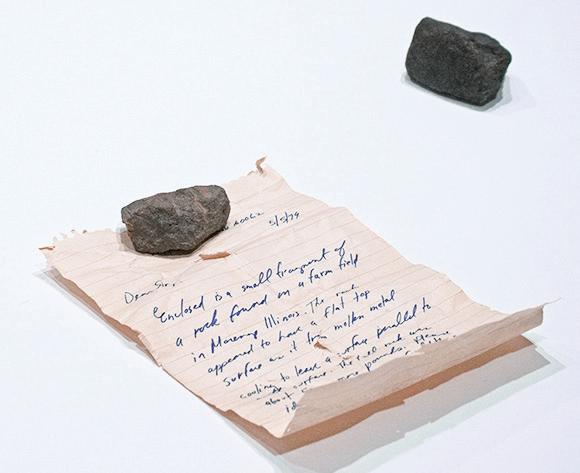 5/5/79
Dear Sir,
Enclosed is a small fragment of
a rock found on a farm field
in Illinois. The rock
appeared to have a flat top
surface as it from molten metal
cooling to leave a surface parallel to
surface. The rock was
about pounds.